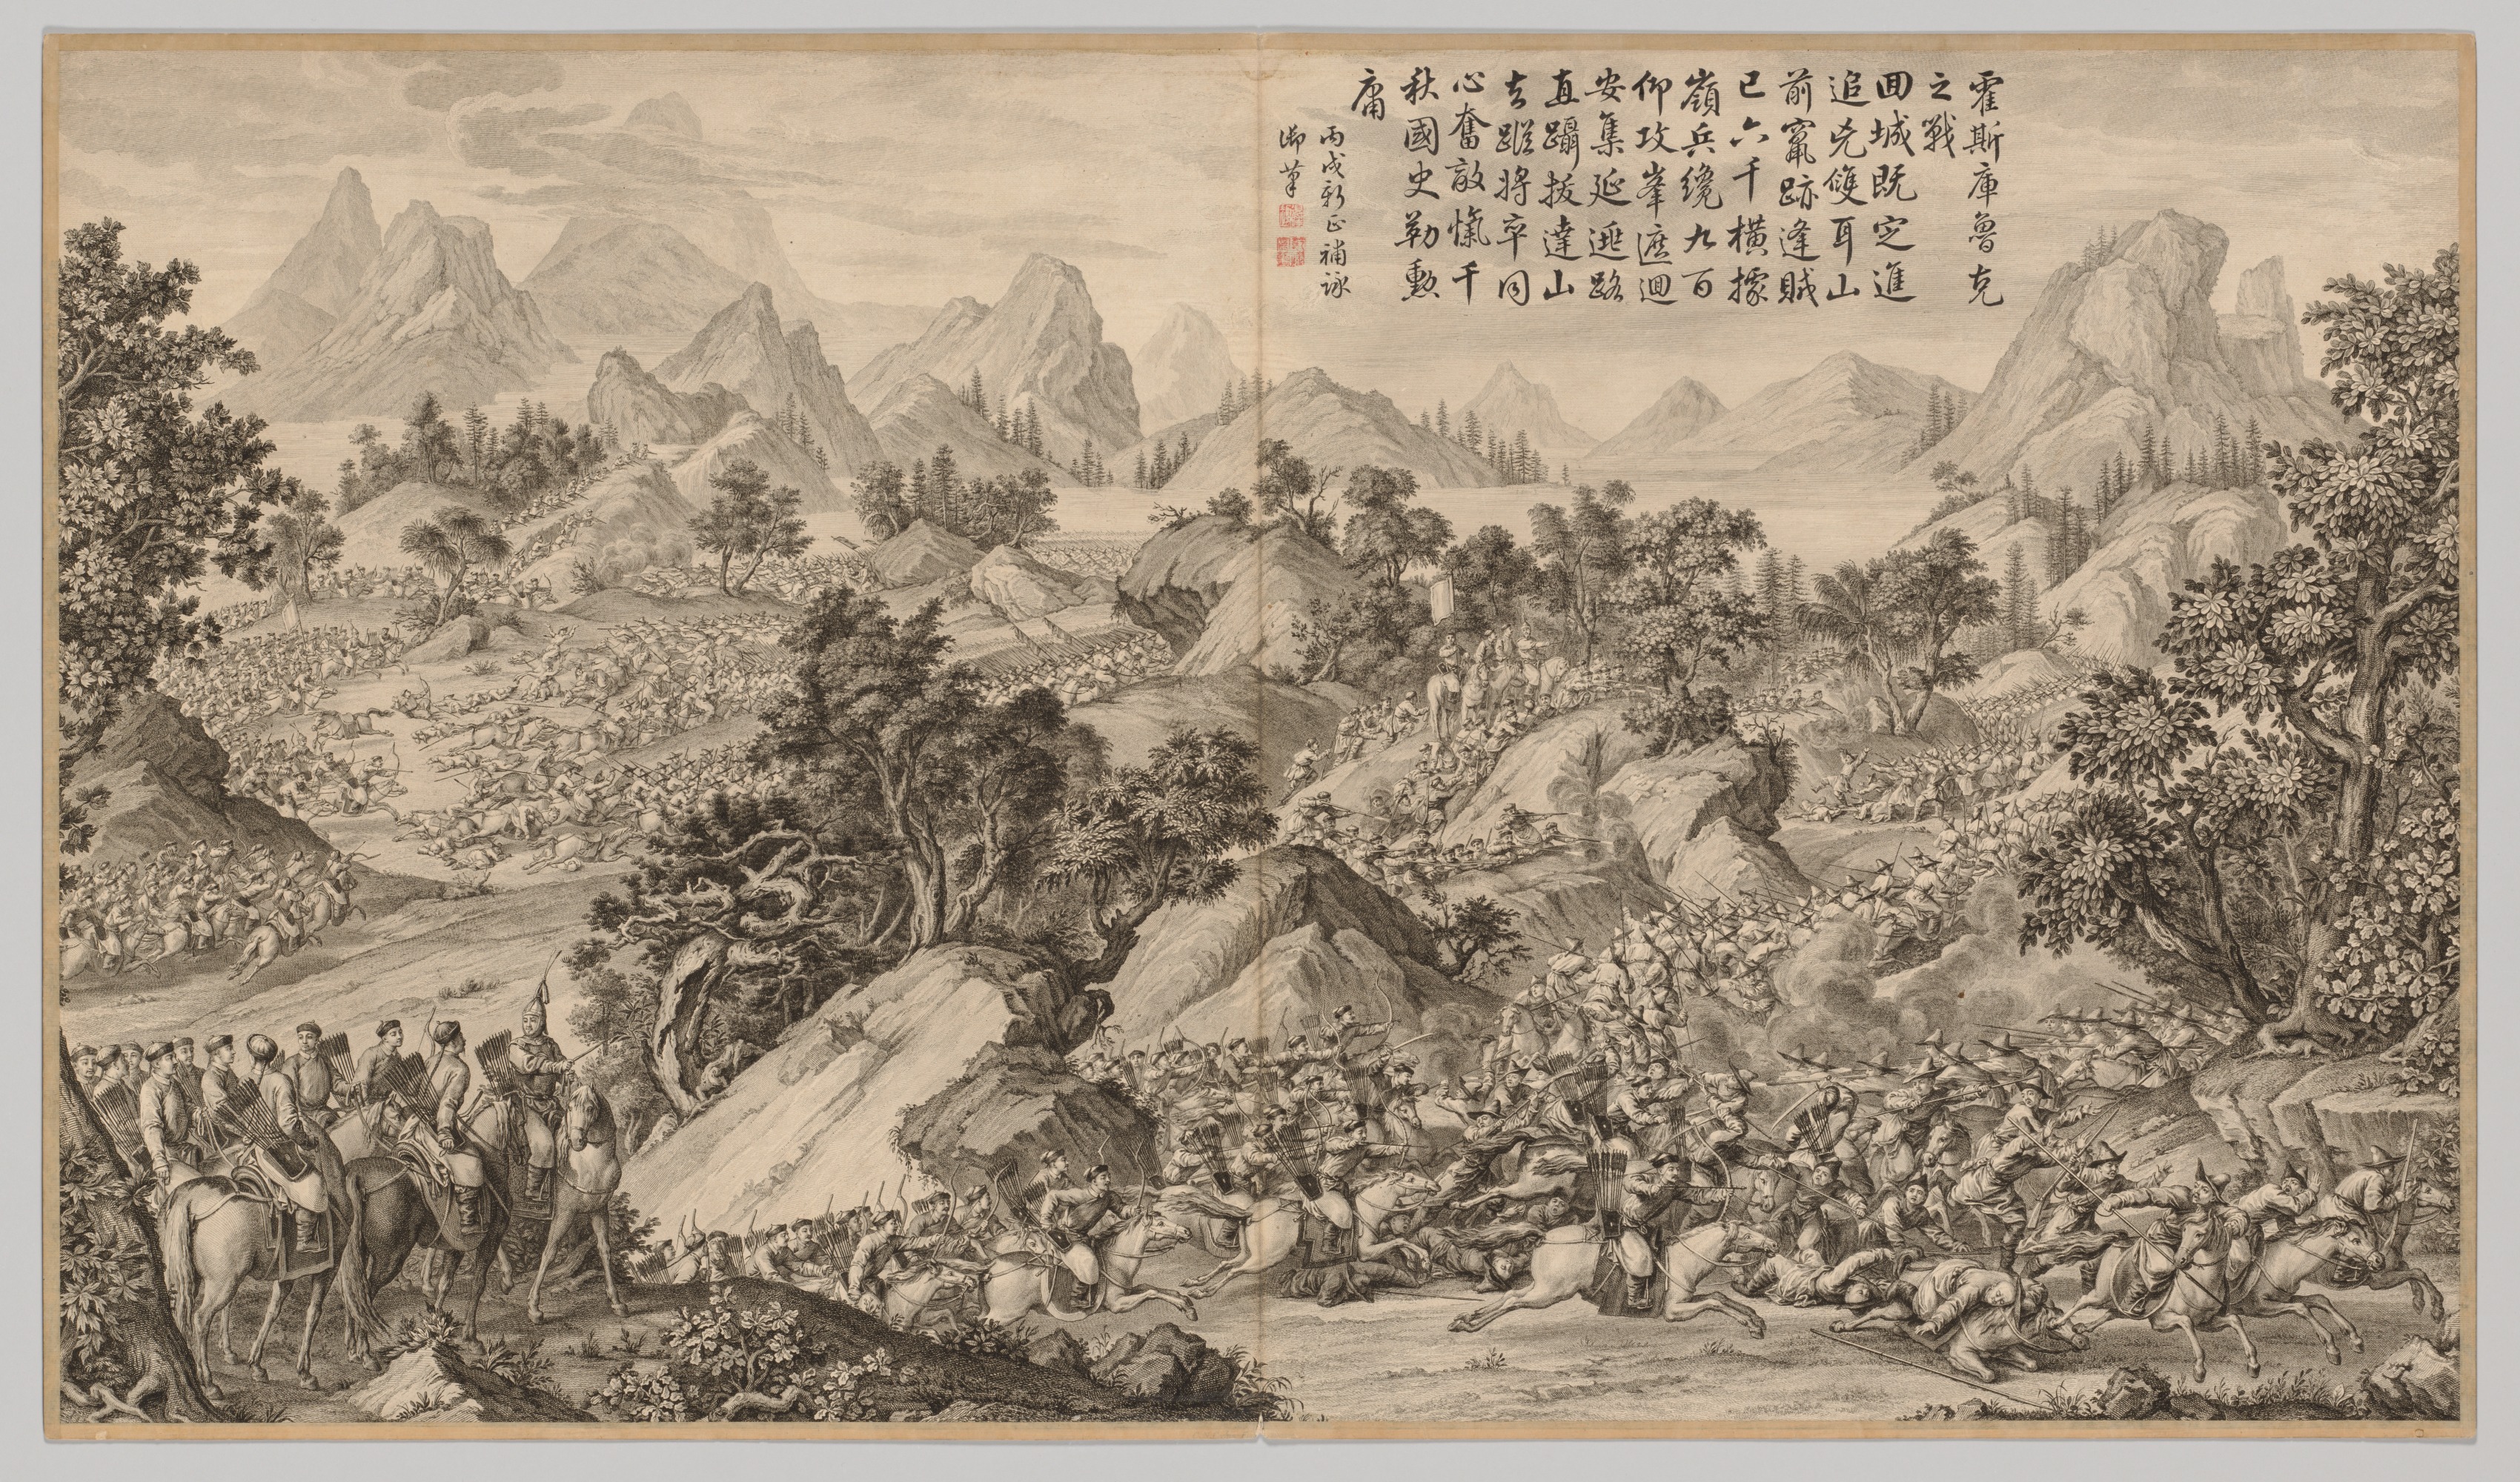 霍斯庫魯克
之戰
囬城既定進
追兇雙耳山
前竄跡逢賊
已六千橫據
嶺兵纔九百
仰攻峯遮迴
安集延逃路
直躡拔達山
去蹤將卒同
心奮敵愾千
秋國史勒勳
庸
丙戌新正補詠
御筆